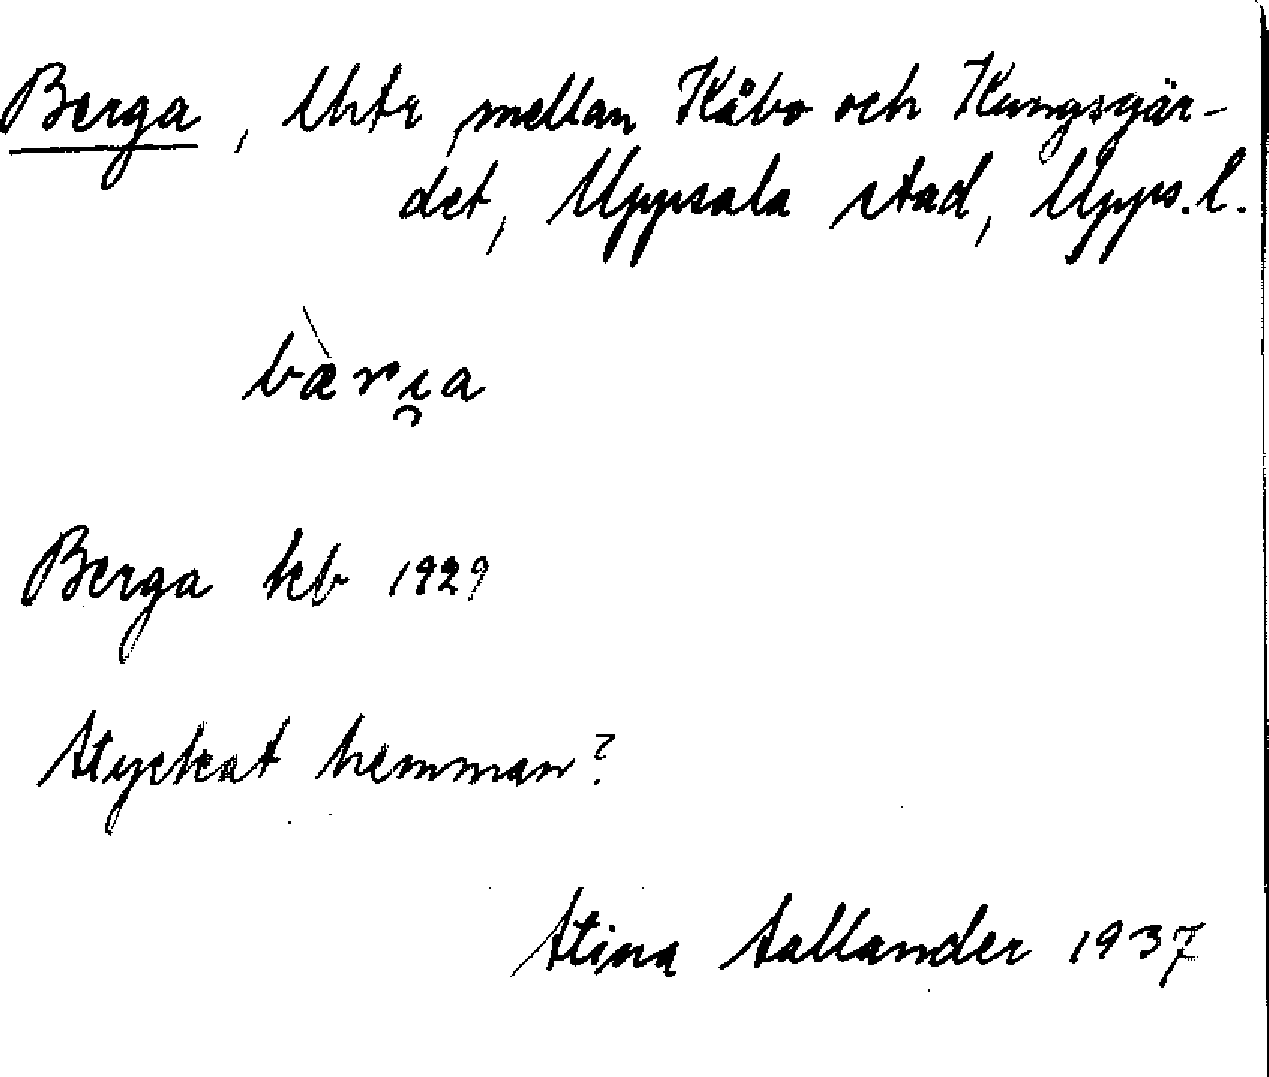 Berga, Uhtr mellan Kåbo och Kungsgär-
det, Uppsala stad, Upps. l.
bær̀ı̯a
Berga kb 1929
Styckat hemman?
Stina Sallander 1937